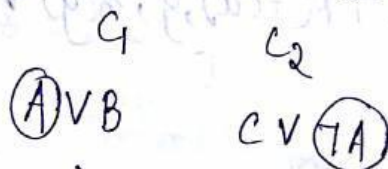 C1 C2
A V B C V ¬A